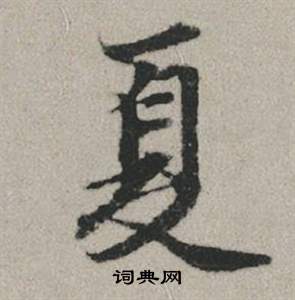 夏
词典网